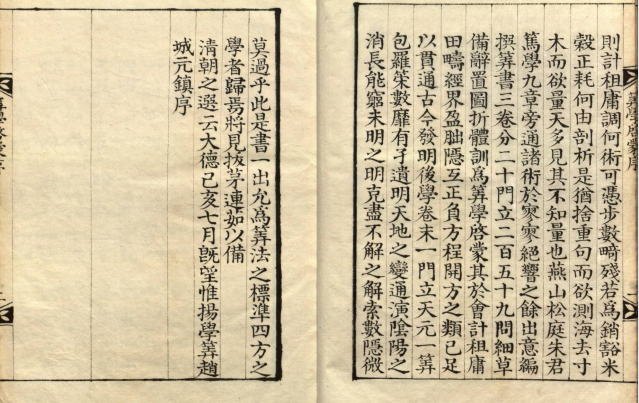 則計租庸調何術可憑步數畸殘若爲銷豁米
穀正耗何由剖析是猶捨重句而欲測海去寸
木而欲量天多見其不知量也燕山松庭朱君
篤學九章旁通諸術於寥寥絕響之餘出意編
撰筭書三卷分二十門立二百五十九問細草
備辭置圖折體訓爲筭學啓蒙其於會計租庸
田疇經界盈朒隱互正負方程開方之類已足
以貫通古今發明後學卷末一門立天元一筭
包羅策數靡有孑遺明天地之變通演陰陽之
消長能窮未明之明克盡不解之解索數隱微
莫過乎此是書一出允爲筭法之標準四方之
學者歸焉將見拔茅連茹以備
清朝之選云大德己亥七月旣望惟揚學筭趙
城元鎮序
筭學啓蒙序